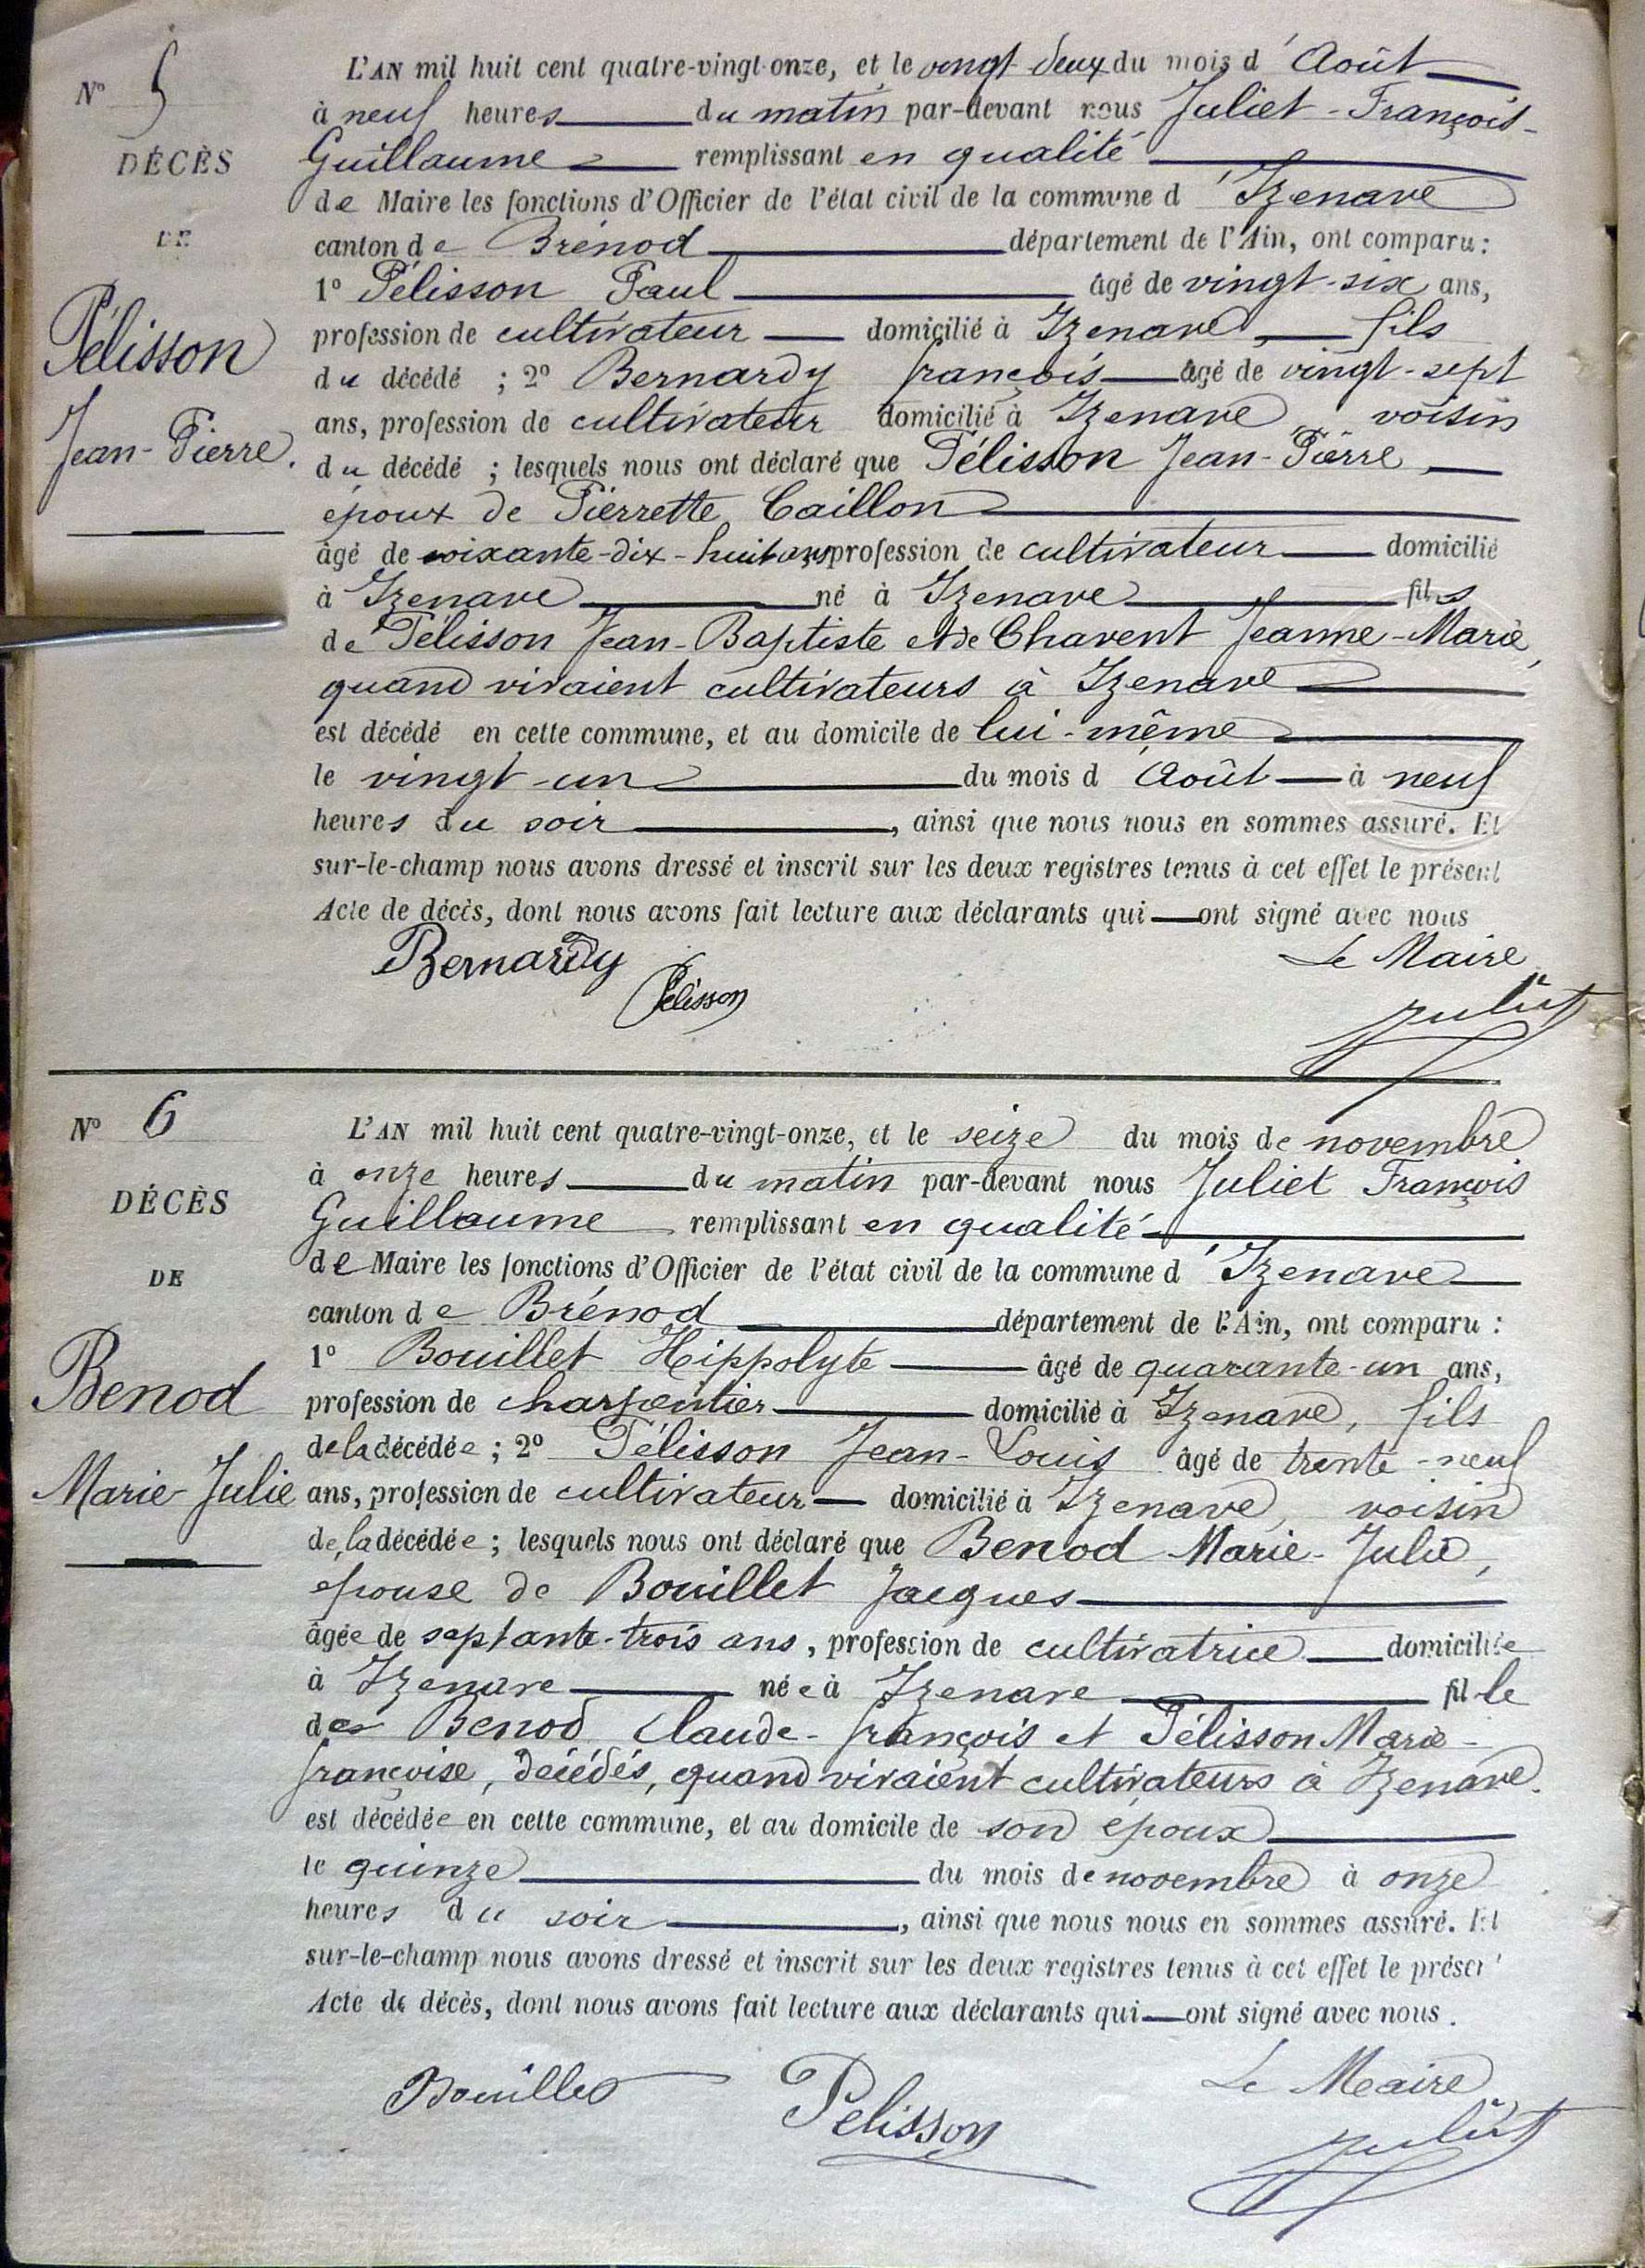 N° 5
DÉCÈS
DE
Pélisson
Jean-Pierre.
L'AN mil huit cent quatre-vingt-onze, et le vingt deux du mois d'Août
à neuf heures du matin par-devant nous Juliet-François-
Guillaume remplissant en qualité
de Maire les fonctions d'Officier de l'état civil de la commune d'Izenave
canton de Brénod département de l'Ain, ont comparu :
1° Pélisson Paul âgé de vingt-six ans,
profession de cultivateur domicilié à Izenave, fils
du décédé ; 2° Bernardy françois âgé de vingt-sept
ans, profession de cultivateur domicilié à Izenave, voisin
du décédé ; lesquels nous ont déclaré que Pélisson Jean-Pierre,
époux de Pierrette Caillon
âgé de soixante-dix-huit ans profession de cultivateur domicilié
à Izenave né à Izenave fils
de Pélisson Jean-Baptiste et de Chavent Jeanne-Marie,
quand vivaient cultivateurs à Izenave
est décédé en cette commune, et au domicile de lui-même
le vingt-un du mois d'Août à neuf
heures du soir, ainsi que nous nous en sommes assuré. Et
sur-le-champ nous avons dressé et inscrit sur les deux registres tenus à cet effet le présent
Acte de décès, dont nous avons fait lecture aux déclarants qui ont signé avec nous
Bernardy Le Maire
Pélisson Juliet
N° 6
DÉCÈS
DE
Benod
Marie-Julie
L'AN mil huit cent quatre-vingt-onze, et le seize du mois de novembre
à onze heures du matin par-devant nous Juliet François
Guillaume remplissant en qualité
de Maire les fonctions d'Officier de l'état civil de la commune d'Izenave
canton de Brénod département de l'Ain, ont comparu :
1° Bouillet Hippolyte âgé de quarante-un ans,
profession de charpentier domicilié à Izenave, fils
de la décédée ; 2° Pélisson Jean-Louis âgé de trente-neuf
ans, profession de cultivateur domicilié à Izenave, voisin
de la décédée ; lesquels nous ont déclaré que Benod Marie-Julie,
épouse de Bouillet Jacques
âgée de septante-trois ans, profession de cultivatrice domiciliée
à Izenave née à Izenave fille
des Benod Claude-françois et Pélisson Marie-
françoise, décédés, quand vivaient cultivateurs à Izenave.
est décédée en cette commune, et au domicile de son époux
le quinze du mois de novembre à onze
heures du soir, ainsi que nous nous en sommes assuré. Et
sur-le-champ nous avons dressé et inscrit sur les deux registres tenus à cet effet le présent
Acte de décès, dont nous avons fait lecture aux déclarants qui ont signé avec nous.
Bouillet Pelisson Le Maire
Juliet